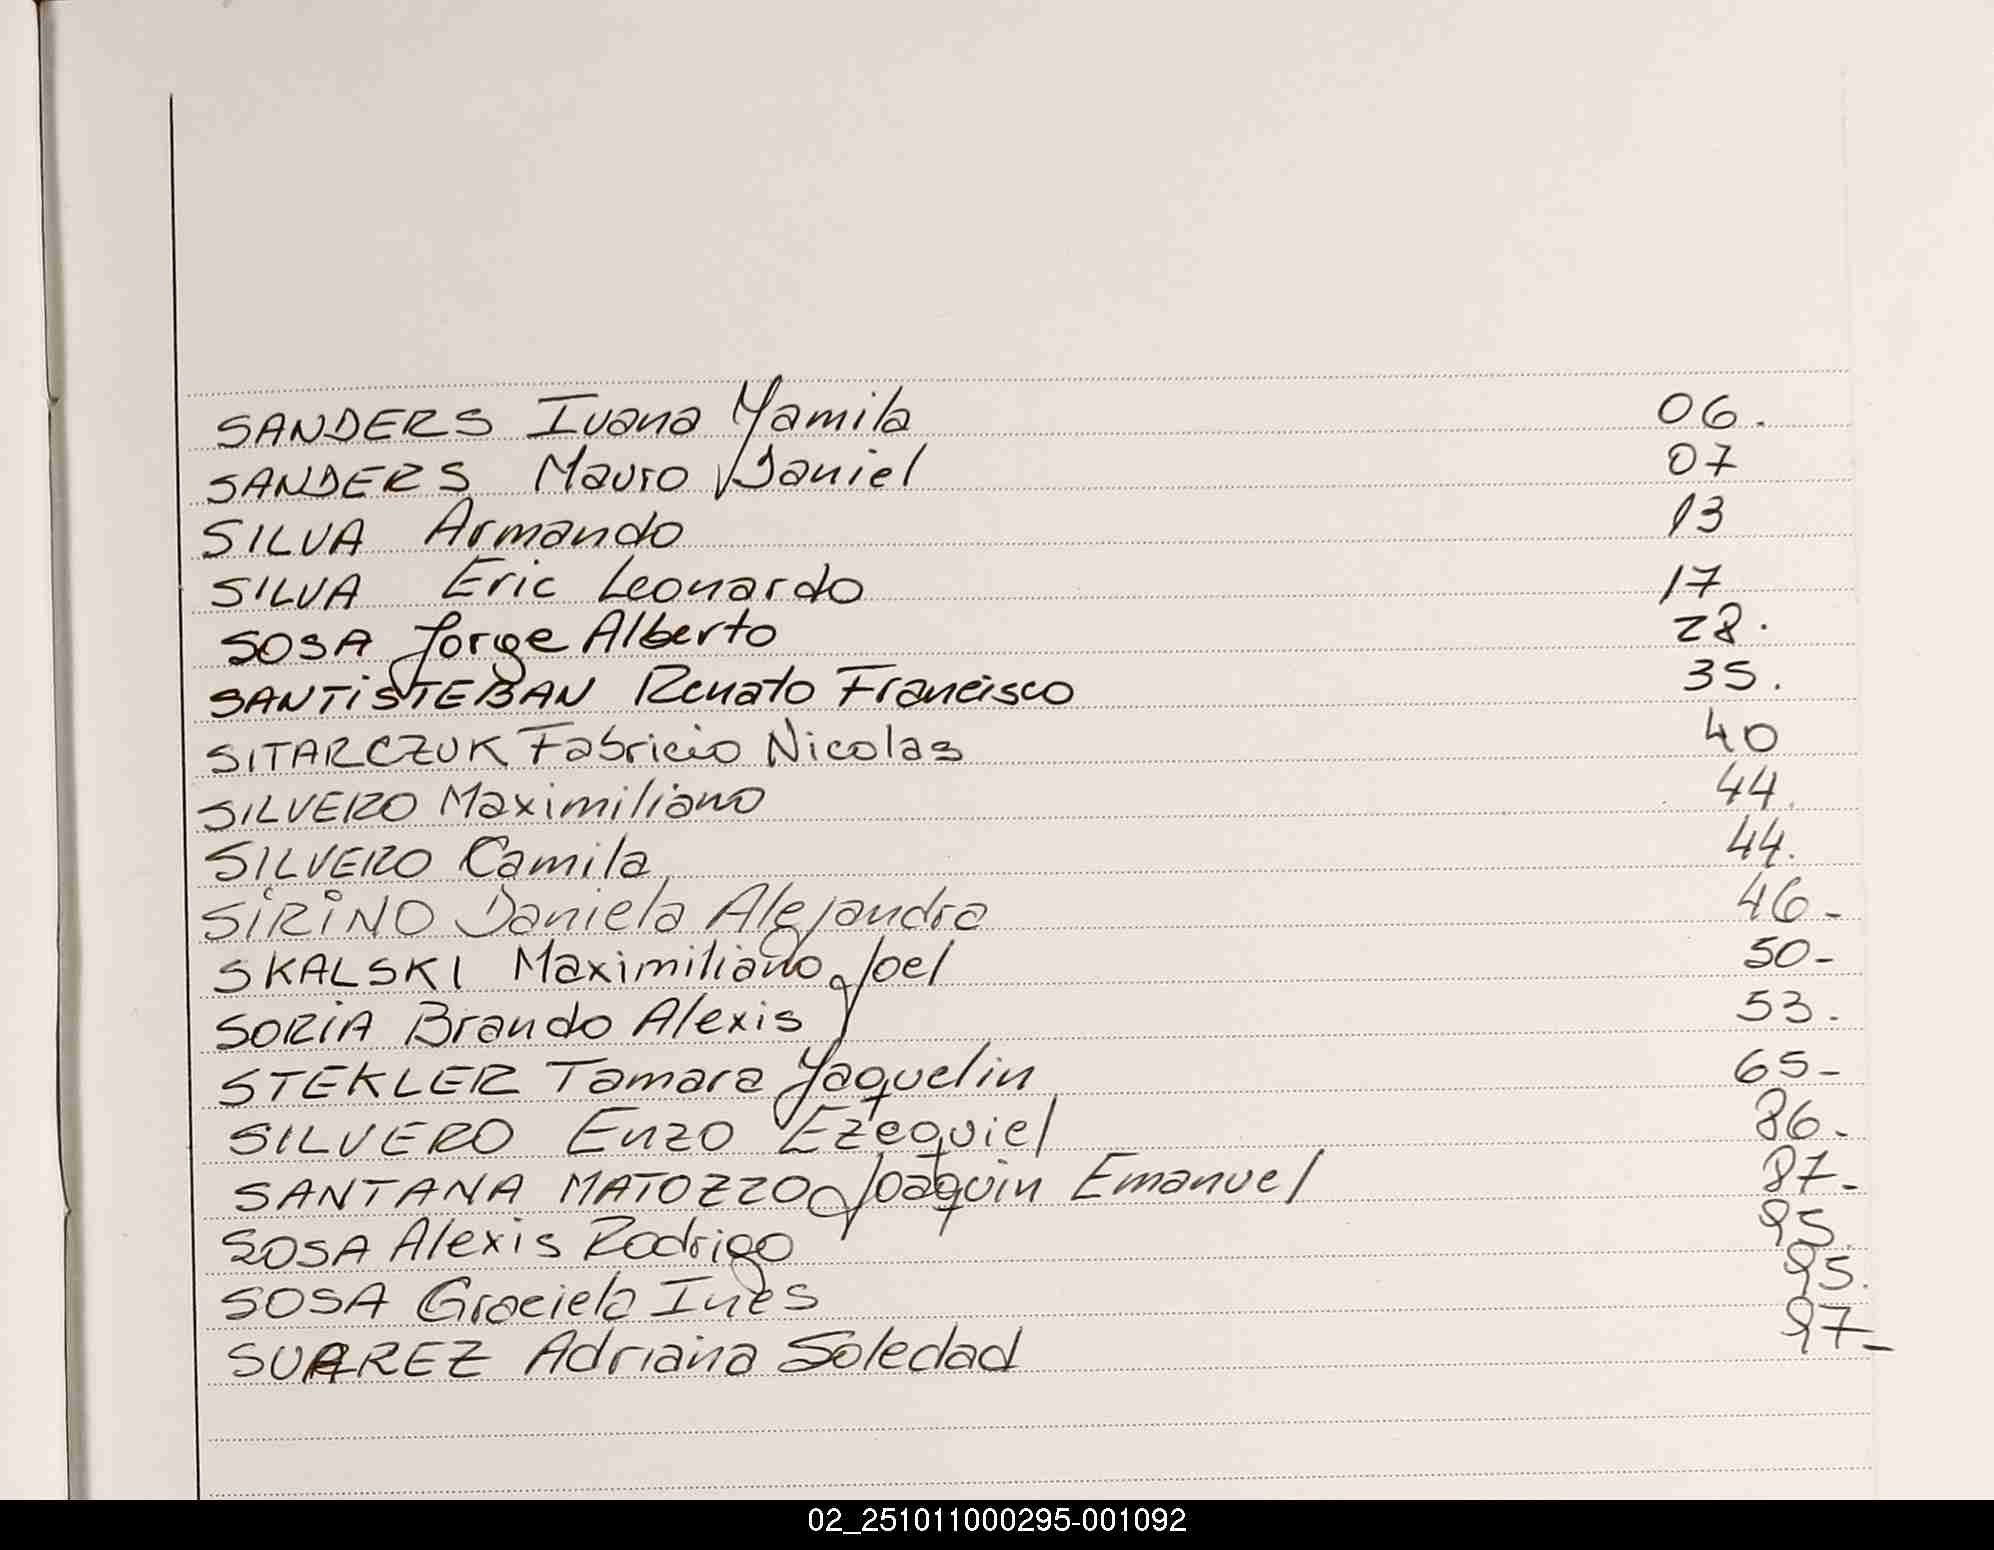 SANDERS Ivana Yamila 06.
SANDERS Mauro Daniel 07
SILVA Armando 13
SILVA Eric Leonardo 17
SOSA Jorge Alberto 28.
SANTiSTEBAN Renato Francisco 35.
SITARCZUK Fabricio Nicolas 40
SILVERO Maximiliano 44.
SILVERO Camila 44.
SiRiNO Daniela Alejandra 46-
SKALSKI Maximiliano Joel 50-
SORiA Brando Alexis 53.
STEKLER Tamara Yaquelin 65-
SILVERO Enzo Ezequiel 86-
SANTANA MATOZZO Joaquin Emanuel 87-
SOSA Alexis Rodrigo 95.
SOSA Graciela Ines 95.
SUAREZ Adriana Soledad 97-
02_251011000295-001092